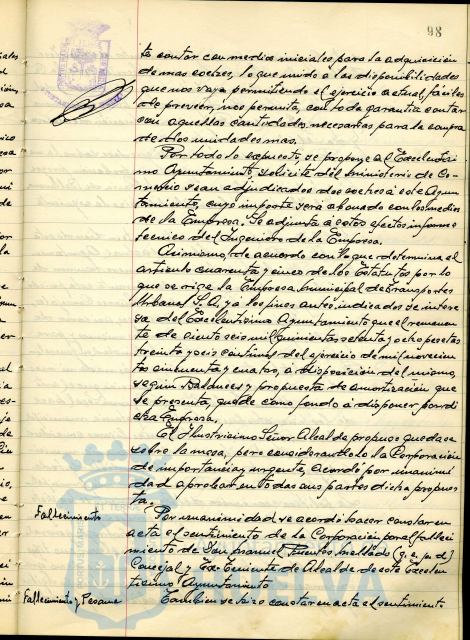 98
te contar con medios iniciales para la adquisición
de mas coches, lo que unido a las disponibilidades
que nos vaya permitiendo el ejercicio actual, faciles
de preveer, nos permita, con toda garantia contar
con aquellas cantidades necesarias para la compra
de dos unidades mas.
Por todo lo expuesto, se propone al Excelentisi
mo Ayuntamiento, solicite del Ministerio de Co-
mercio sean adjudicados dos coches a este Ayun-
tamiento, cuyo importe será abonado con los medios
de la Empresa. Se adjunta a estos efectos informe
tecnico del Ingeniero de la Empresa.
Asimismo, de acuerdo con lo que determina el
articulo cuarenta y cinco de los Estatutos por lo
que se rige la Empresa Municipal de Transportes
Urbanos S.A. y a los fines antes indicados se intere
sa del Excelentisimo Ayuntamiento que el remanen
te de ciento seis mil quinientas setenta y ocho pesetas
treinta y seis centimos del ejercicio de mil novecien
tos cincuenta y cuatro, a disposición del mismo,
segun Balances y propuesta de amortización que
se presenta, quede como fondo a disponer por di
cha Empresa.
El Ilustrisimo Señor Alcalde propuso quedase
sobre la mesa, pero considerandolo la Corporación
de importancia y urgente, acordó por unanimi
dad aprobar en todas sus partes dicha propues
ta.
Fallecimiento
Por unanimidad se acordó hacer constar en
acta el sentimiento de la Corporación por el falleci
miento de Don Manuel Mellado (q.e.p.d)
Concejal y Ex-Teniente de Alcalde de este Excelen
tisimo Ayuntamiento
Fallecimiento y Pesame
Tambien se hizo constar en acta el sentimiento
HUELVA